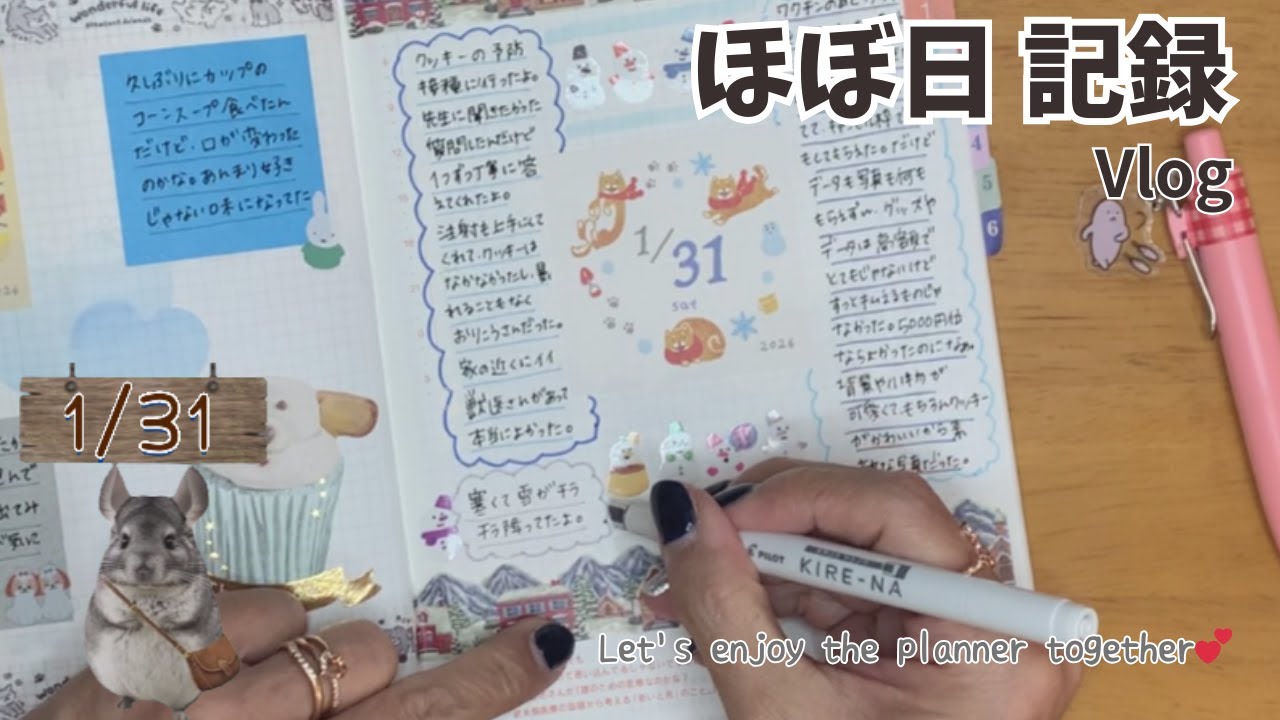 ほぼ日 記録
Vlog
wonderful life
久しぶりにカップの
コーンスープ食べたん
だけど、口が変わった
のかな。あんまり好き
じゃない味になってた
クッキーの予防
接種に行ったよ。
先生に聞きたかった
質問したんだけど
1つずつ丁寧に答
えてくれたよ。
注射も上手にして
くれて、クッキーは
なかなかったし、暴
れることもなく
おりこうさんだった。
家の近くにイイ
獣医さんがあって
本当によかった。
寒くて雪がチラ
チラ降ってたよ。
1/31
sat
2026
もしてもらえた。だけど
データも写真も何も
もらえずｗ、グッズや
データは高額で
とてもじゃないけど
ずっと手に入るものじゃ
なかった。5,000円位
ならよかったのになぁ。
背景や小物が
可愛くて、もちろんクッキー
がかわいいから素
敵な写真だった。
4
5
6
1/31
PILOT
KIRE-NA
Let's enjoy the planner together💕